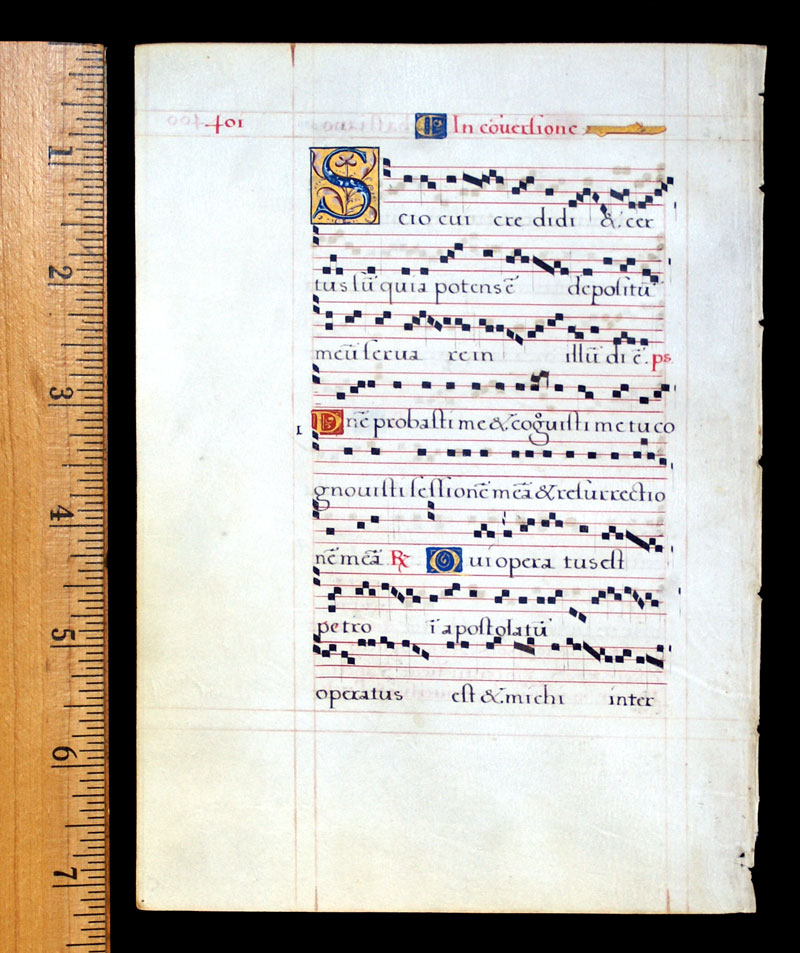 401 In cōuersione
Scio cui credidi & cer
tus sū quia potens ē depositū
meū seruare in illū diē. ps
1 Dn̄e probasti me & cog̊uisti me tu co
gnouisti sessionē meā & resurrectio
nē meā R̃ Qui operatus est
petro ī apostolatū
operatus est & michi inter
1
2
3
4
5
6
7